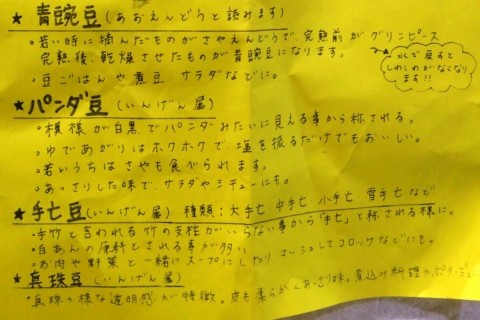 ★ 青豌豆 (あおえんどうと読みます)
・若い時に摘んだものがさやえんどうで、完熟前がグリンピース
完熟後、乾燥させたものが青豌豆になります。
・豆ごはんや煮豆、サラダなどに。
水で戻すと
しわしわがなくなり
ます!!
★ パンダ豆 (いんげん属)
・模様が白黒でパンダみたいに見える事から称される。
・ゆであがりはホクホクで、塩を振るだけでもおいしい。
・若いうちはさやも食べられます。
・あっさりした味で、サラダやシチューにも。
★ 手亡豆 (いんげん属) 種類:大手亡 中手亡 小手亡 雪手亡など
・手竹と言われる竹の支柱がいらない事から「手亡」と称される様に。
・白あんの原料とされる事が多い。
・お肉や野菜と一緒にスープにしたり、マッシュしてコロッケなどにも。
★ 真珠豆 (いんげん属)
・真珠の様な透明感が特徴。皮も柔らかくあっさり味。煮込み料理やポタージュに